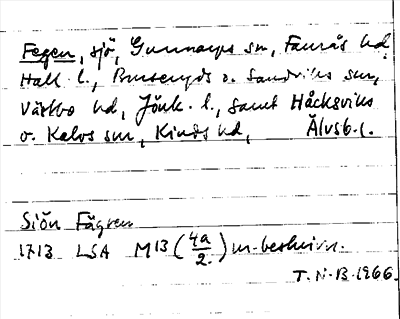 Fegen, sjö, Gunnarps sn, Faurås hd,
Hall. l., Burseryds o. Sandviks snr,
Västbo hd, Jönk. l., samt Håcksviks
o. Kalvs snr, Kinds hd, Älvsb. l.
Siön Fägren
1713 LSA M13 (4a/2) m. beskrivn.
T. N-B. 1966.